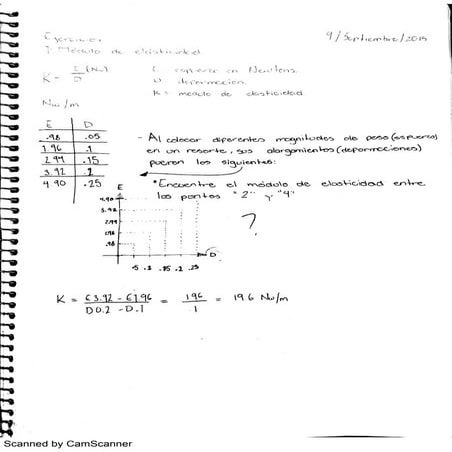 Ejercicio:
9/Septiembre/2015
1. Módulo de elasticidad
K = E (Nw) / D
E esfuerzo en Newtons
D deformacion
K = modulo de elasticidad
Nw/m
E D
.98 .05
1.96 .1
2.94 .15
3.92 .2
4.90 .25
- Al colocar diferentes magnitudes de peso (esfuerzo)
en un resorte, sus alargamientos (deformaciones)
fueron los siguientes:
* Encuentre el módulo de elasticidad entre
los puntos "2" y "4"
?
E
4.90
3.92
2.94
1.96
.98
D
.5 .1 .15 .2 .25
K = E3.92 - E1.96 / D0.2 - D.1 = 1.96 / .1 = 19.6 Nw/m
Scanned by CamScanner